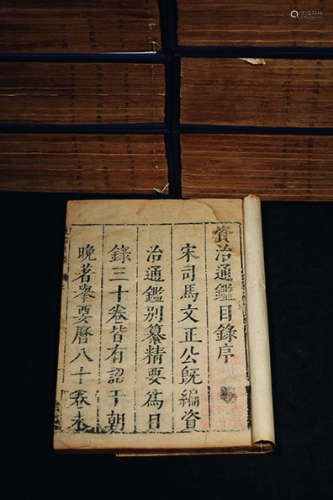 資治通鑑目錄序
宋司馬文正公既編資
治通鑑別纂精要為目
錄三十卷皆有認于朝
晚著舉要曆八十卷未